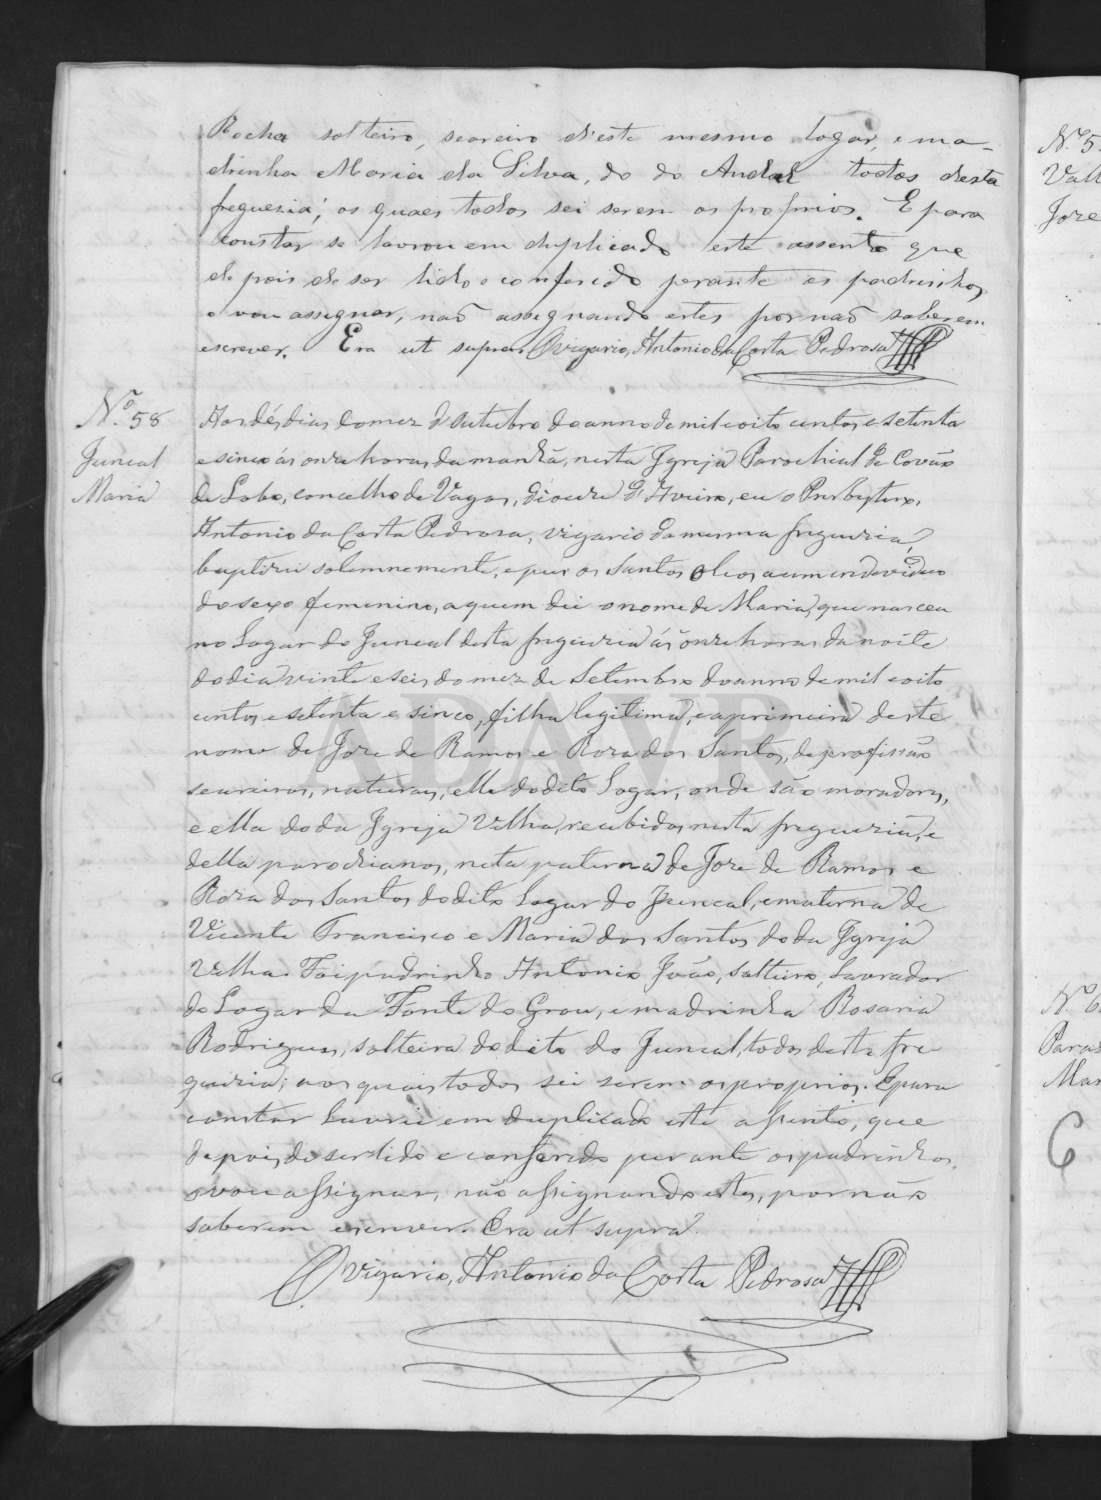 Rocha solteiro, seareiro d'este mesmo logar, e ma-
drinha Maria da Silva, do do Andal todos desta
freguesia; os quaes todos sei serem os proprios. E para
constar se lavrou em duplicado este assento que
depois de ser lido e conferido perante os padrinhos
o vou assignar, não assignando estes por não saberem
escrever. Era ut supra. O vigario, Antonio da Costa Pedrosa
Nº 58
Juncal
Maria
Aos dés dias do mez d'Outubro do anno de mil e oito centos e setenta
e sinco ás onze horas da manhã, nesta Igreja Parochial de Covão
do Lobo, concelho de Vagos, diocese d'Aveiro, eu o Presbytero,
Antonio da Costa Pedrosa, vigario da mesma freguezia,
baptizei solemnemente, e puz os Santos Oleos a um individuo
do sexo femenino, a quem dei o nome de Maria, que nasceu
no Logar do Juncal desta freguezia ás onze horas da noite
do dia vinte e seis do mez de Setembro do anno de mil e oito
centos e setenta e sinco, filha legitima, e a primeira deste
nome de Joze de Ramos e Roza dos Santos, de profissão
seareiros, naturaes, elle do dito Logar, onde são moradores,
e ella do da Igreja Velha, recebidos nesta freguezia, e
della parochianos, neta paterna de Joze de Ramos e
Roza dos Santos do dito Logar do Juncal, e materna de
Vicente Francisco e Maria dos Santos do da Igreja
Velha. Foi padrinho Antonio João, solteiro, Lavrador
do Logar da Fonte do Grou, e madrinha Rosaria
Rodrigues, solteira do dito do Juncal, todos desta fre
guezia; aos quais todos sei serem os proprios. E para
constar lavrei em duplicado este assento, que
depois de ser lido e conferido perante os padrinhos,
o vou assignar, não assignando estes, por não
saberem escrever. Era ut supra.
O vigario, Antonio da Costa Pedrosa
ADAVR
Nº 5
Vall
Joze
Nº 6
Paras
Mar